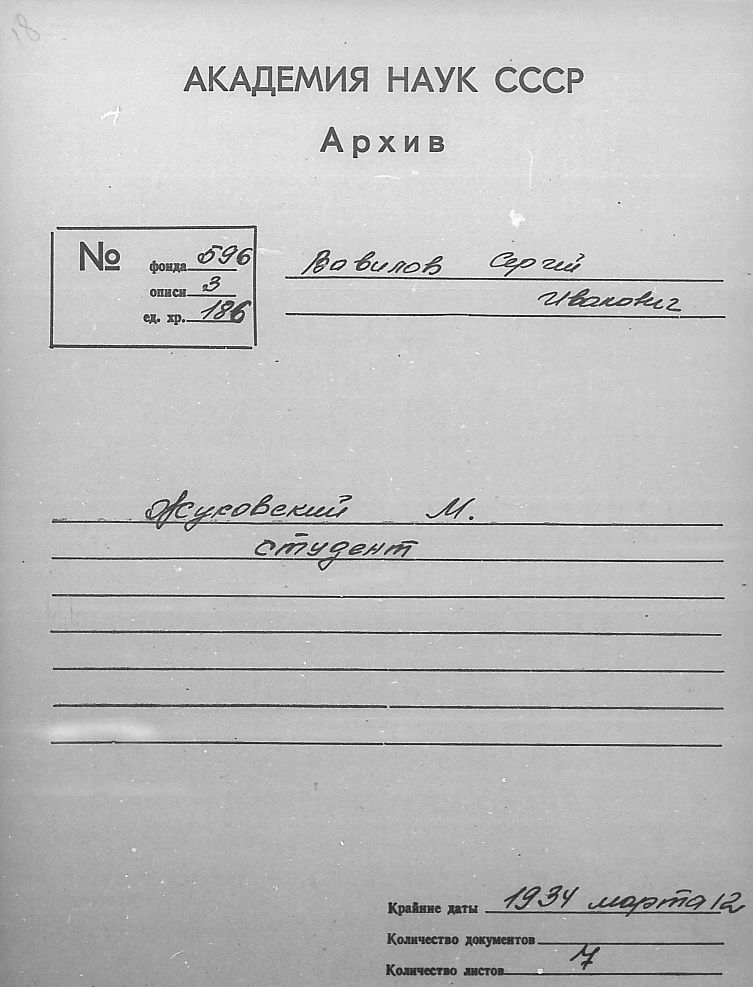 18
АКАДЕМИЯ НАУК СССР
Архив
№ фонда 596
описи 3
ед. хр. 186
Вавилов Сергий
Иванович
Жуковский М.
студент
Крайние даты 1934 марта 12
Количество документов
Количество листов 7